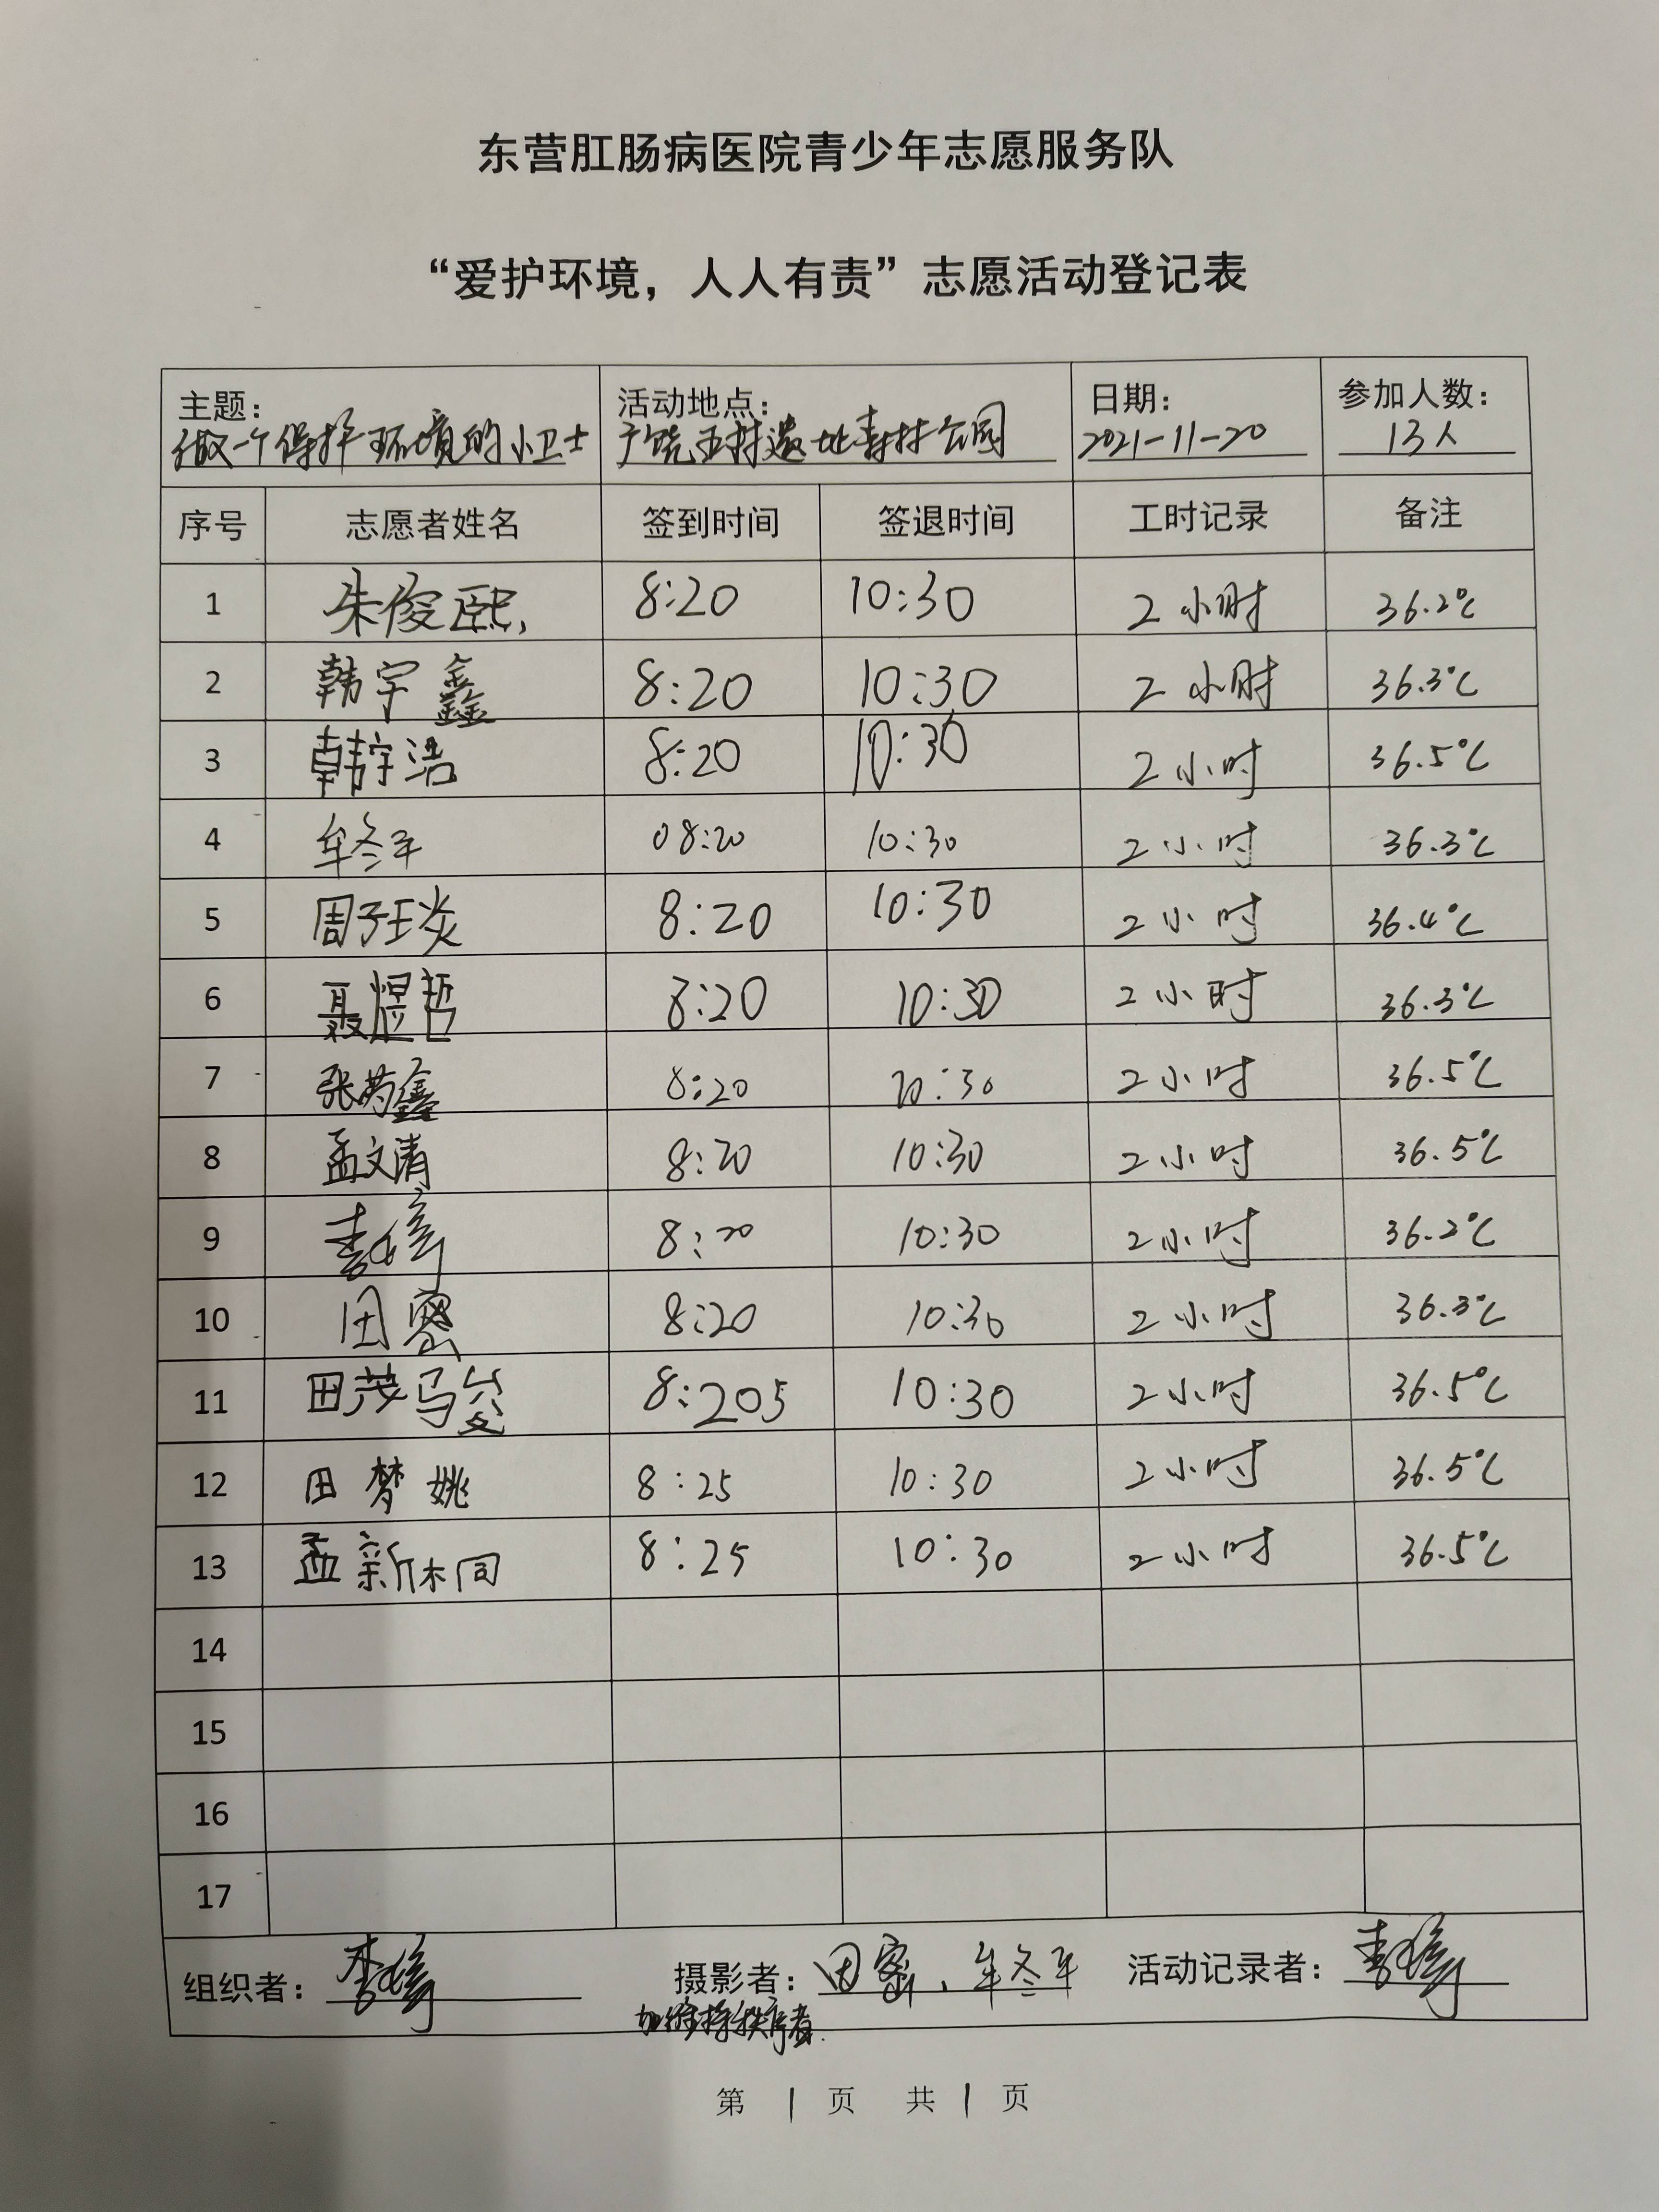 东营肛肠病医院青少年志愿服务队
“爱护环境，人人有责”志愿活动登记表
主题： 活动地点： 日期： 参加人数：
做一个保护环境的小卫士 广饶五村遗址森林公园 2021-11-20 13人
序号 志愿者姓名 签到时间 签退时间 工时记录 备注
1 朱俊熙 8:20 10:30 2小时 36.2℃
2 韩宇鑫 8:20 10:30 2小时 36.3℃
3 韩宇浩 8:20 10:30 2小时 36.5℃
4 牟冬平 08:20 10:30 2小时 36.3℃
5 周子琰 8:20 10:30 2小时 36.4℃
6 聂煜哲 8:20 10:30 2小时 36.3℃
7 张芮鑫 8:20 10:30 2小时 36.5℃
8 孟文清 8:20 10:30 2小时 36.5℃
9 李婷 8:20 10:30 2小时 36.2℃
10 田密 8:20 10:30 2小时 36.3℃
11 田茂骏 8:205 10:30 2小时 36.5℃
12 田梦姚 8:25 10:30 2小时 36.5℃
13 孟新桐 8:25 10:30 2小时 36.5℃
14
15
16
17
组织者：李婷 摄影者：田密、牟冬平 活动记录者：李婷
加维持秩序者.
第 1 页 共 1 页